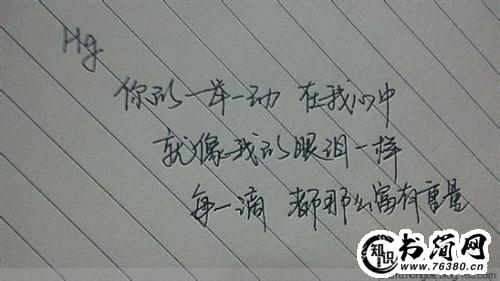 Hg.
你的一举一动 在我心中
就像我的眼泪一样
每一滴 都那么富有重量
知识
书简网
www.76380.cn